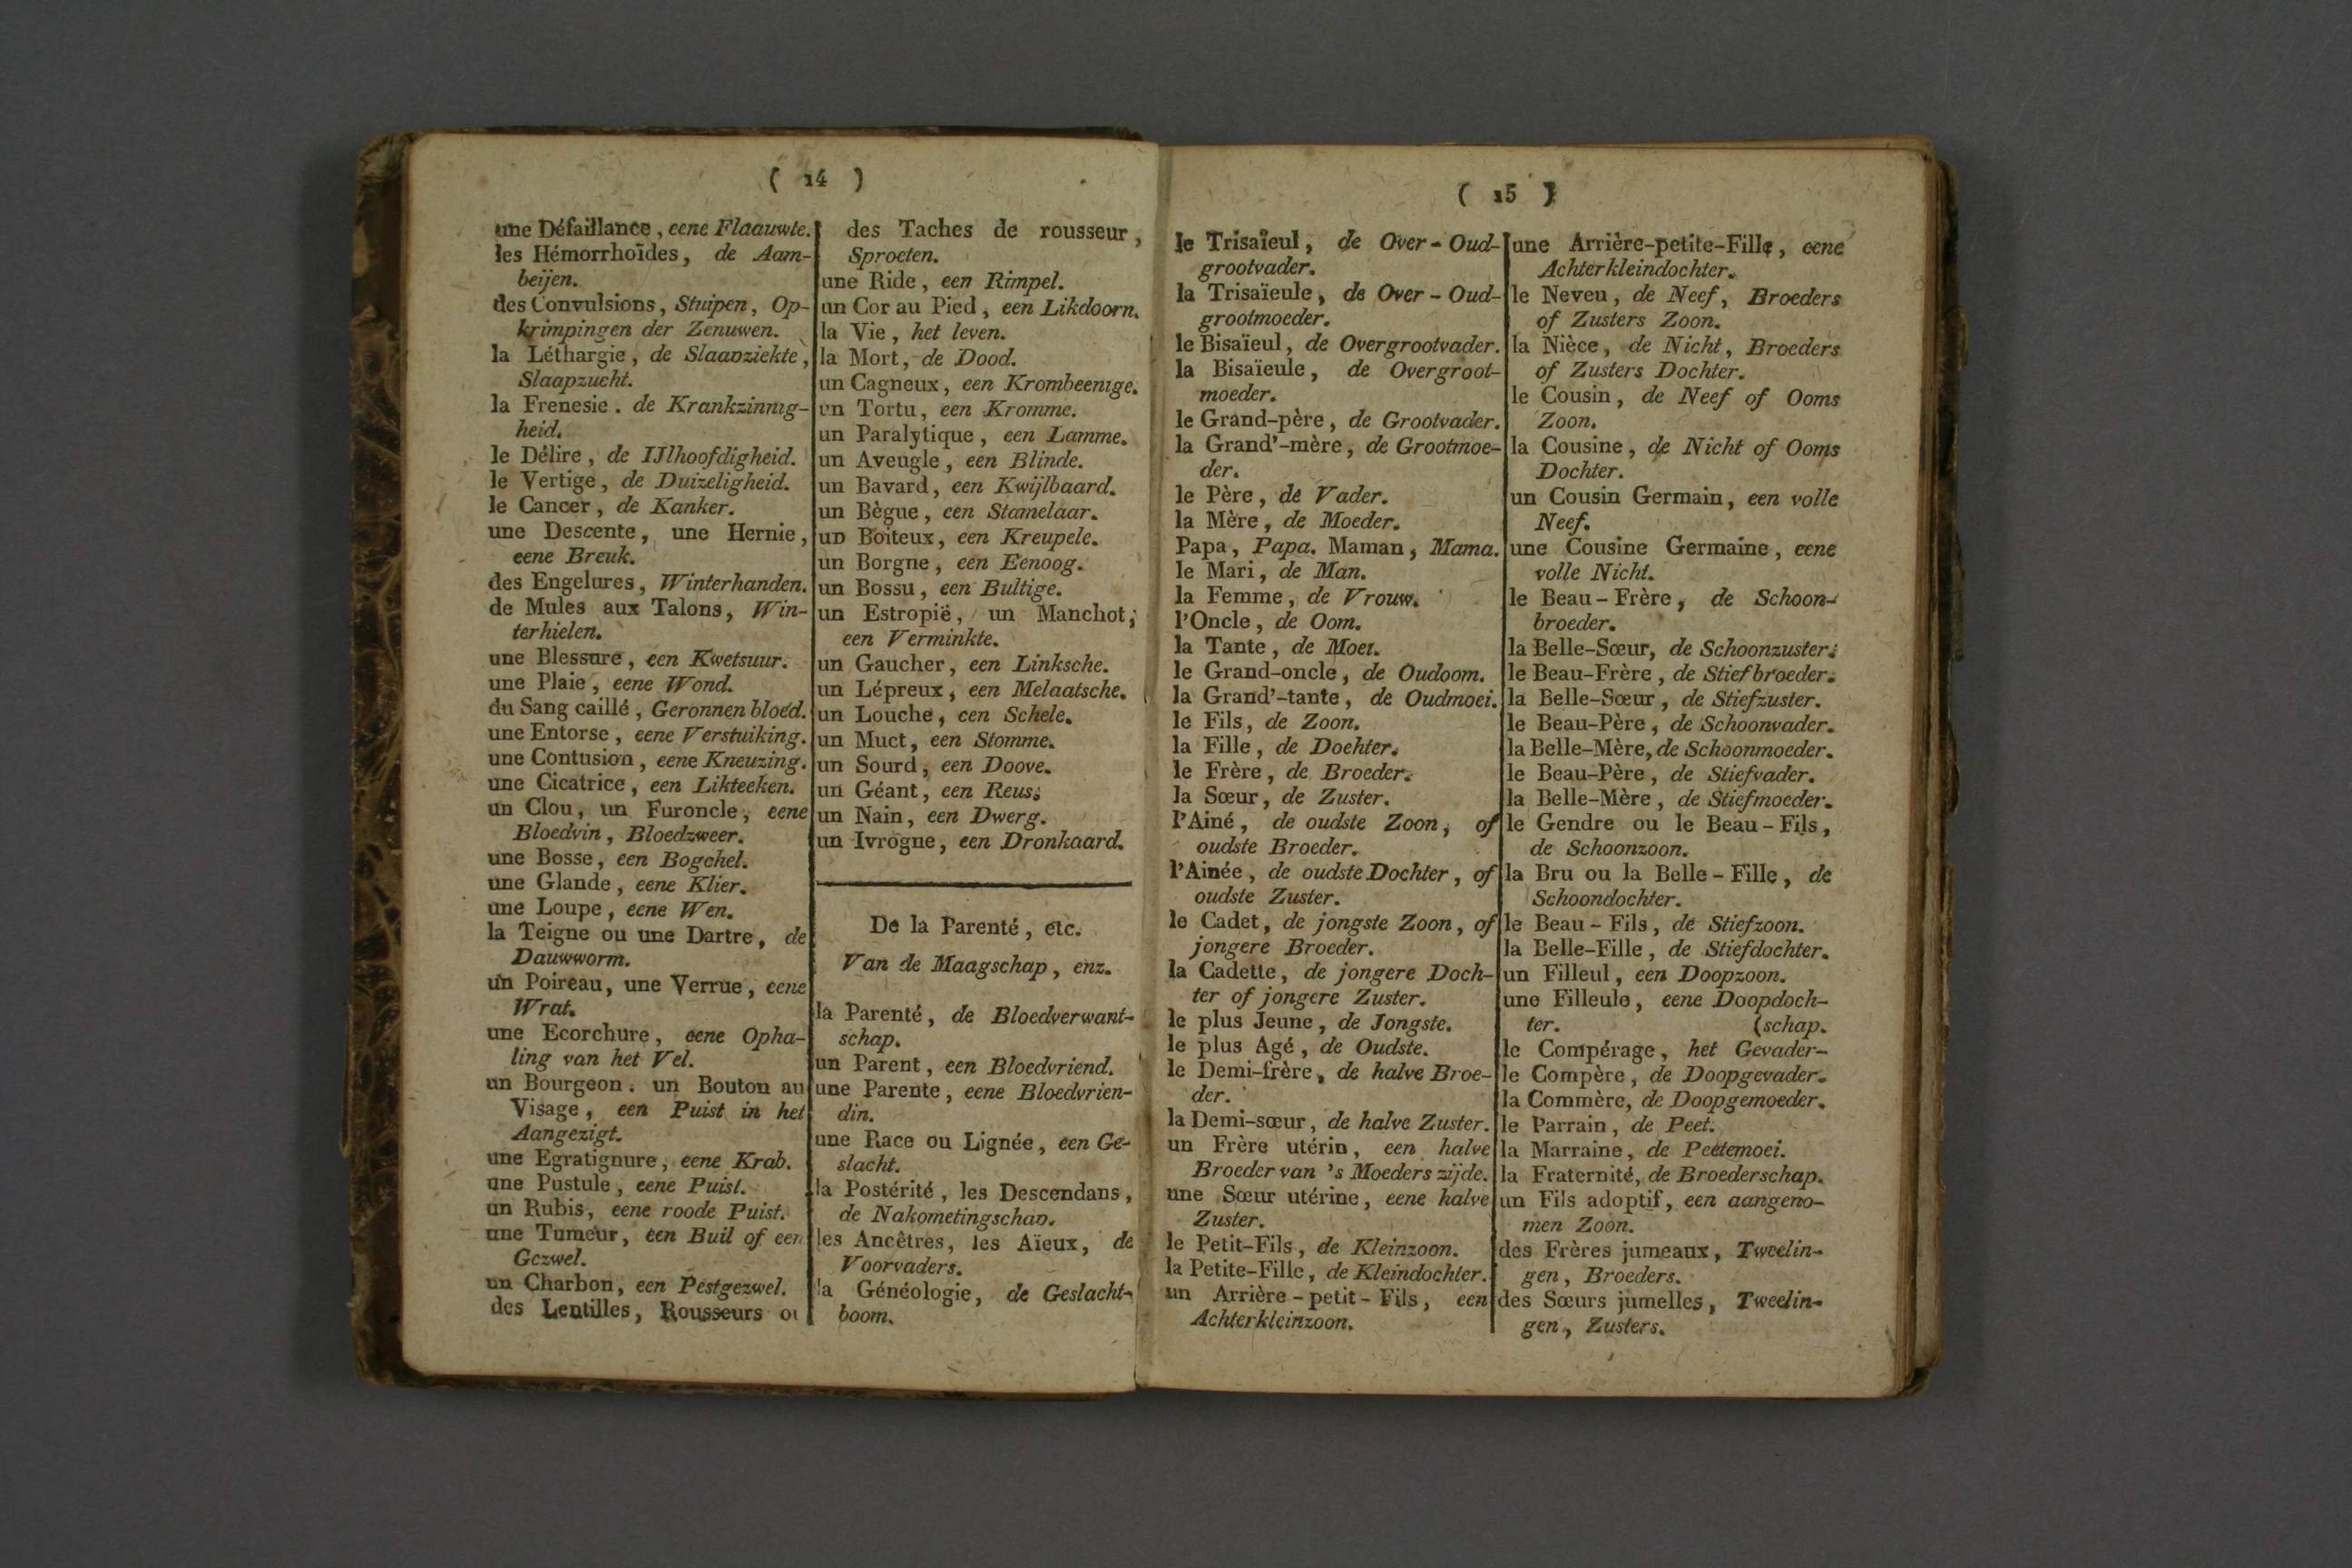 ( 14 )
une Défaillance, eene Flaauwte.
les Hémorrhoïdes, de Aam-
beijen.
des Convulsions, Stuipen, Op-
krimpingen der Zenuwen.
la Léthargie, de Slaapziekte,
Slaapzucht.
la Frenesie. de Krankzinnig-
heid.
le Délire, de IJlhoofdigheid.
le Vertige, de Duizeligheid.
le Cancer, de Kanker.
une Descente, une Hernie,
eene Breuk.
des Engelures, Winterhanden.
de Mules aux Talons, Win-
terhielen.
une Blessure, een Kwetsuur.
une Plaie, eene Wond.
du Sang caillé, Geronnen bloed.
une Entorse, eene Verstuiking.
une Contusion, eene Kneuzing.
une Cicatrice, een Likteeken.
un Clou, un Furoncle, eene
Bloedvin, Bloedzweer.
une Bosse, een Bogchel.
une Glande, eene Klier.
une Loupe, eene Wen.
la Teigne ou une Dartre, de
Dauwworm.
un Poireau, une Verrue, eene
Wrat.
une Ecorchure, eene Opha-
ling van het Vel.
un Bourgeon. un Bouton au
Visage, een Puist in het
Aangezigt.
une Egratignure, eene Krab.
une Pustule, eene Puist.
un Rubis, eene roode Puist.
une Tumeur, een Buil of een
Gezwel.
un Charbon, een Pestgezwel.
des Lentilles, Rousseurs ou
des Taches de rousseur,
Sproeten.
une Ride, een Rimpel.
un Cor au Pied, een Likdoorn.
la Vie, het leven.
la Mort, de Dood.
un Cagneux, een Krombeenige.
un Tortu, een Kromme.
un Paralytique, een Lamme.
un Aveugle, een Blinde.
un Bavard, een Kwijlbaard.
un Bègue, een Stamelaar.
un Boiteux, een Kreupele.
un Borgne, een Eenoog.
un Bossu, een Bultige.
un Estropië, un Manchot,
een Verminkte.
un Gaucher, een Linksche.
un Lépreux, een Melaatsche.
un Louche, een Schele.
un Muet, een Stomme.
un Sourd, een Doove.
un Géant, een Reus.
un Nain, een Dwerg.
un Ivrogne, een Dronkaard.
De la Parenté, etc.
Van de Maagschap, enz.
la Parenté, de Bloedverwant-
schap.
un Parent, een Bloedvriend.
une Parente, eene Bloedvrien-
din.
une Race ou Lignée, een Ge-
slacht.
la Postérité, les Descendans,
de Nakomelingschap.
les Ancêtres, les Aïeux, de
Voorvaders.
la Généologie, de Geslacht-
boom.
( 15 )
le Trisaïeul, de Over-Oud-
grootvader.
la Trisaïeule, de Over-Oud-
grootmoeder.
le Bisaïeul, de Overgrootvader.
la Bisaïeule, de Overgroot-
moeder.
le Grand-père, de Grootvader.
la Grand'-mère, de Grootmoe-
der.
le Père, de Vader.
la Mère, de Moeder.
Papa, Papa. Maman, Mama.
le Mari, de Man.
la Femme, de Vrouw.
l'Oncle, de Oom.
la Tante, de Moei.
le Grand-oncle, de Oudoom.
la Grand'-tante, de Oudmoei.
le Fils, de Zoon.
la Fille, de Dochter.
le Frère, de Broeder.
la Sœur, de Zuster.
l'Ainé, de oudste Zoon, of
oudste Broeder.
l'Ainée, de oudste Dochter, of
oudste Zuster.
le Cadet, de jongste Zoon, of
jongere Broeder.
la Cadette, de jongere Doch-
ter of jongere Zuster.
le plus Jeune, de Jongste.
le plus Agé, de Oudste.
le Demi-frère, de halve Broe-
der.
la Demi-sœur, de halve Zuster.
un Frère utérin, een halve
Broeder van 's Moeders zijde.
une Sœur utérine, eene halve
Zuster.
le Petit-Fils, de Kleinzoon.
la Petite-Fille, de Kleindochter.
un Arrière-petit-Fils, een
Achterkleinzoon.
une Arrière-petite-Fille, eene
Achterkleindochter.
le Neveu, de Neef, Broeders
of Zusters Zoon.
la Nièce, de Nicht, Broeders
of Zusters Dochter.
le Cousin, de Neef of Ooms
Zoon.
la Cousine, de Nicht of Ooms
Dochter.
un Cousin Germain, een volle
Neef.
une Cousine Germaine, eene
volle Nicht.
le Beau-Frère, de Schoon-
broeder.
la Belle-Sœur, de Schoonzuster.
le Beau-Frère, de Stiefbroeder.
la Belle-Sœur, de Stiefzuster.
le Beau-Père, de Schoonvader.
la Belle-Mère, de Schoonmoeder.
le Beau-Père, de Stiefvader.
la Belle-Mère, de Stiefmoeder.
le Gendre ou le Beau-Fils,
de Schoonzoon.
la Bru ou la Belle-Fille, de
Schoondochter.
le Beau-Fils, de Stiefzoon.
la Belle-Fille, de Stiefdochter.
un Filleul, een Doopzoon.
une Filleule, eene Doopdoch-
ter. (schap.
le Compérage, het Gevader-
le Compère, de Doopgevader.
la Commère, de Doopgemoeder.
le Parrain, de Peet.
la Marraine, de Peetemoei.
la Fraternité, de Broederschap.
un Fils adoptif, een aangeno-
men Zoon.
des Frères jumeaux, Tweelin-
gen, Broeders.
des Sœurs jumelles, Tweelin-
gen, Zusters.